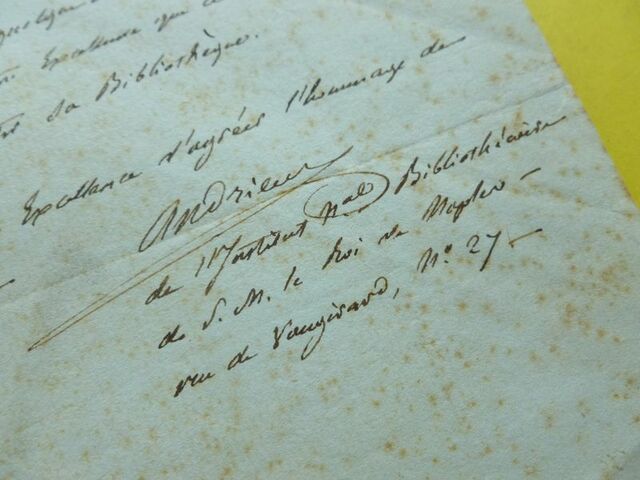 Excellence que
sa Bibliothèque.
Excellence d'agréer l'hommage de
Andrieux
de l'Institut nal Bibliothécaire
de S. M. le Roi de Naples
rue de Vaugirard, N.o 27